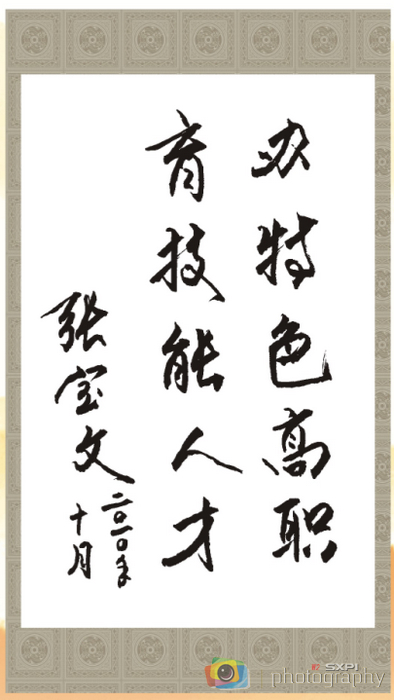 办特色高职
育技能人才
张宝文
二〇一〇年
十月
SXPI
photography